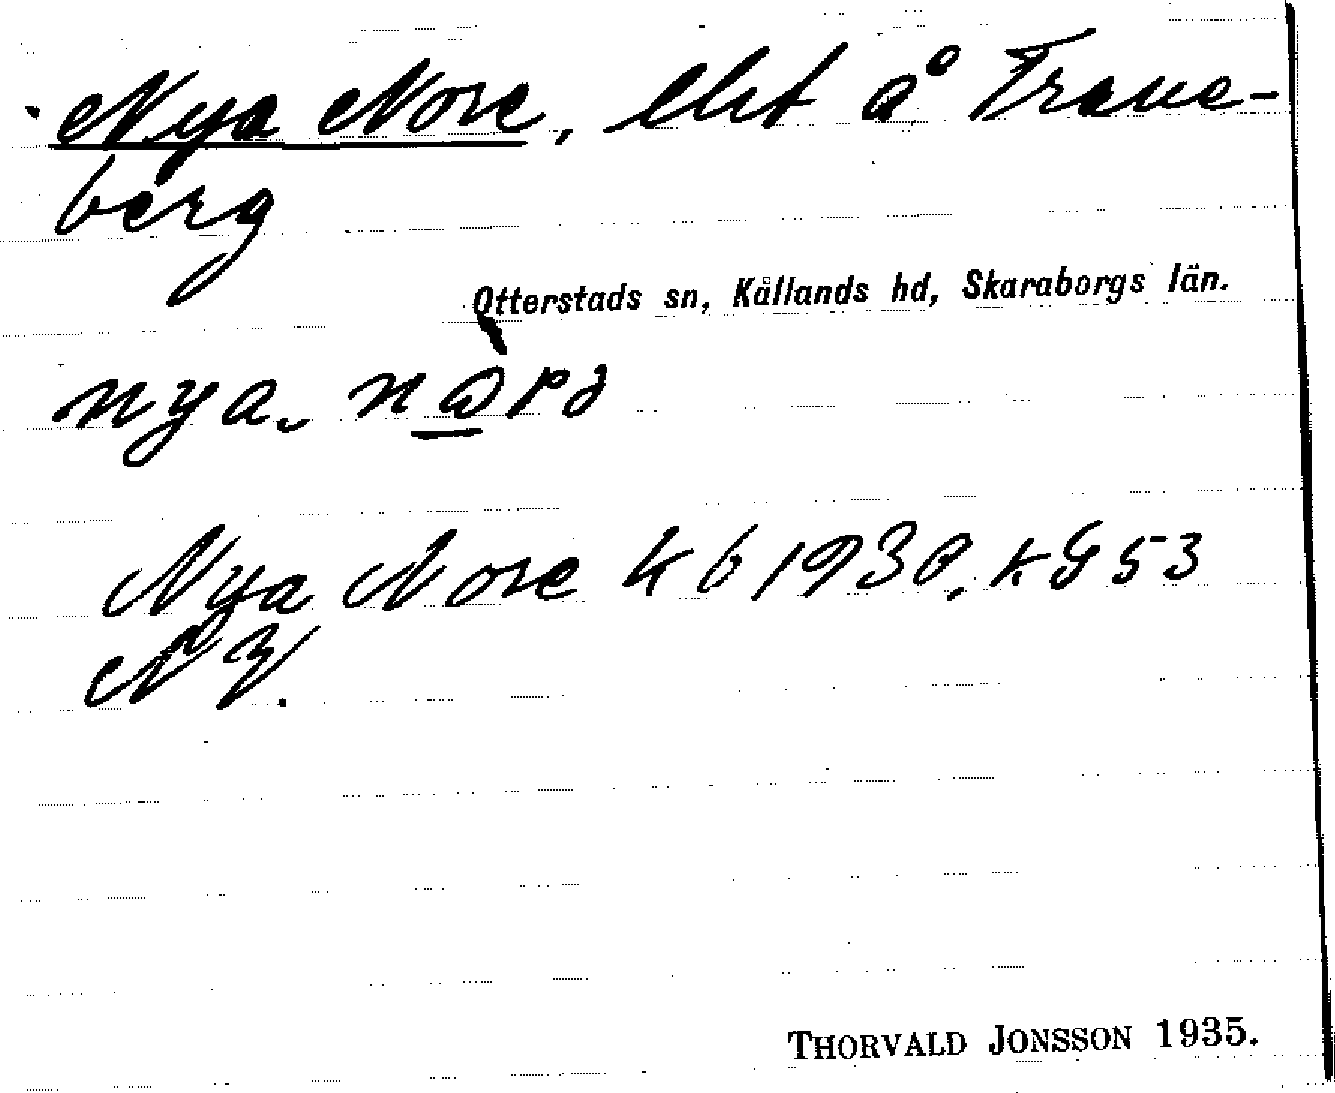 Nya Nore, lht å Trane-
berg
Otterstads sn, Kållands hd, Skaraborgs län.
nya
Nya Nore kb 1930, kG 53
NV.
THORVALD JONSSON 1935.